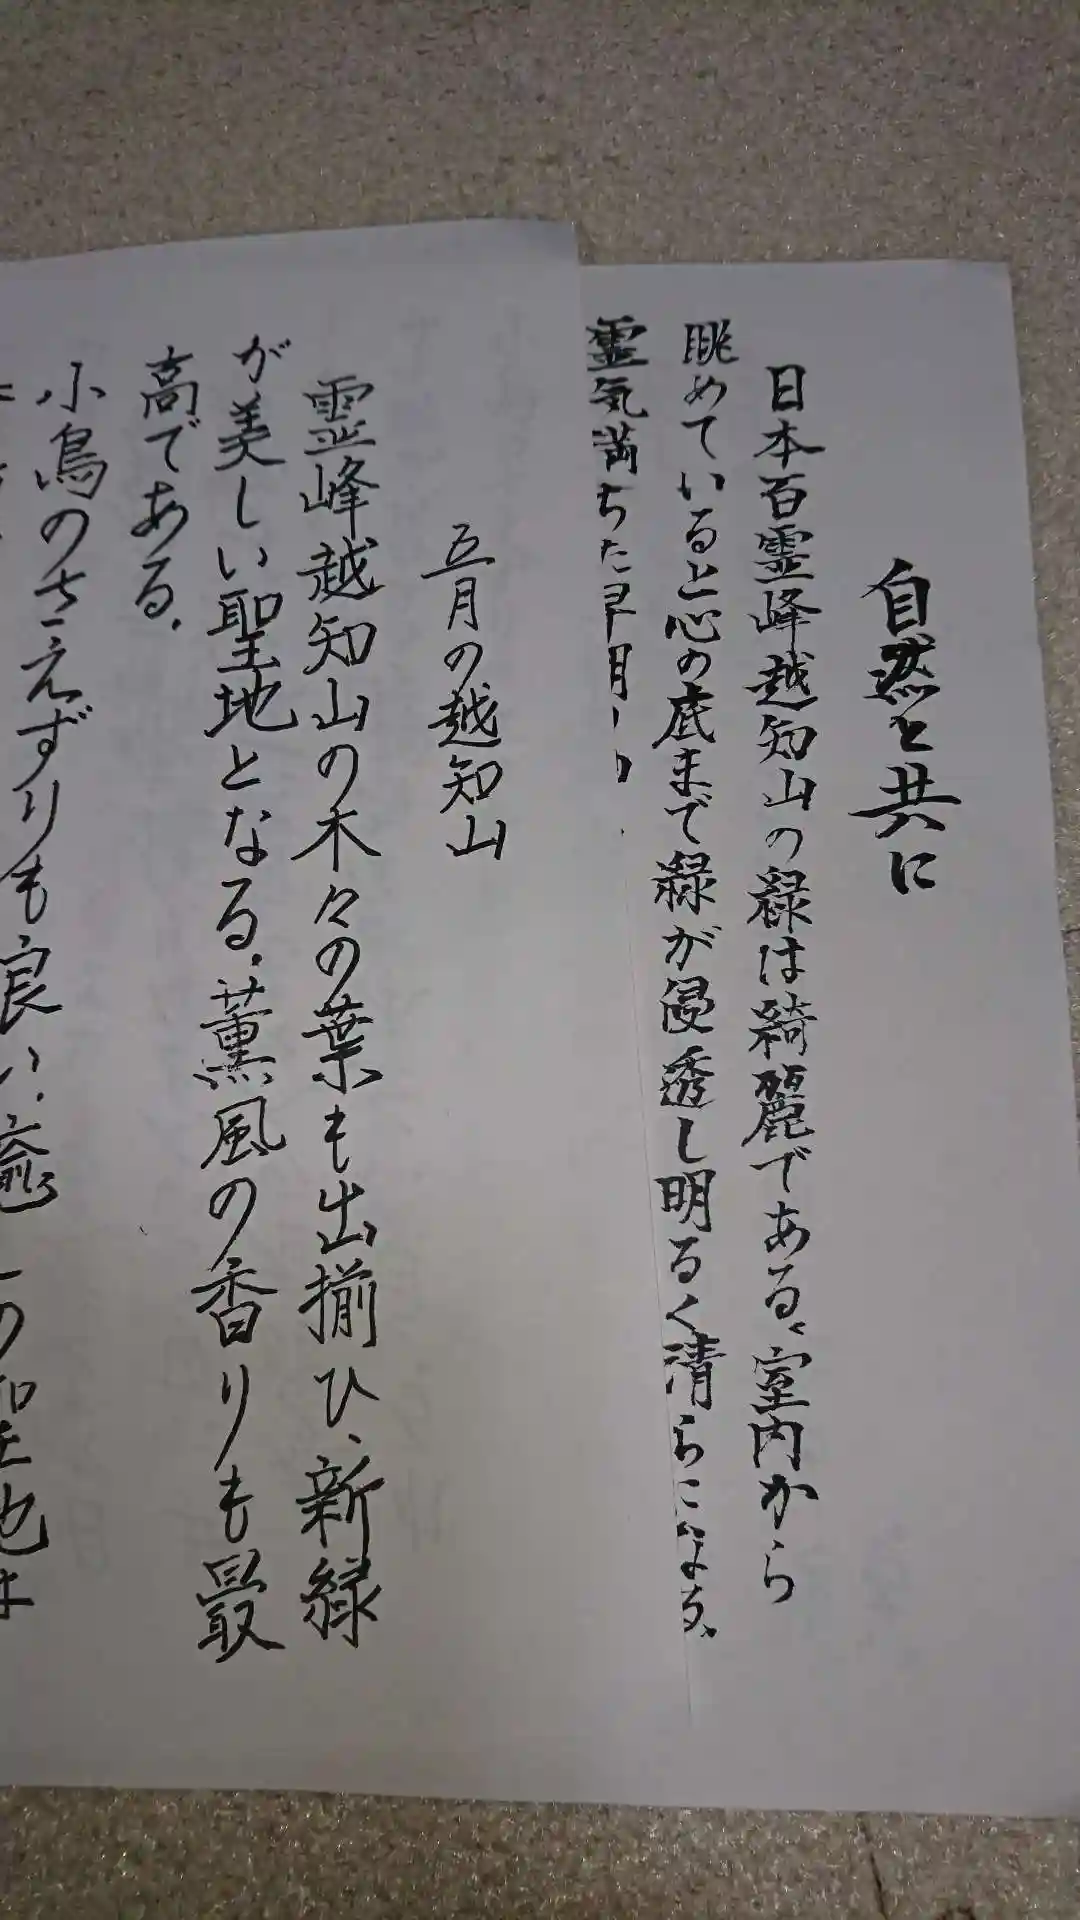 自然と共に
日本百霊峰越知山の緑は綺麗である、室内から
眺めていると心の底まで緑が侵透し明るく清らになる、
霊気満ちた早朝
五月の越知山
霊峰越知山の木々の葉も出揃ひ、新緑
が美しい聖地となる、薫風の香りも最
高である、
小鳥のさえずりも良い、癒
の聖地は